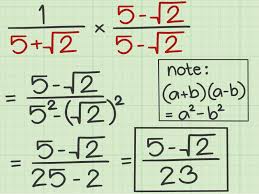 1/(5+√2) × (5-√2)/(5-√2)
= (5-√2)/(5²-(√2)²)
note:
(a+b)(a-b)
= a²-b²
= (5-√2)/(25-2) = (5-√2)/23